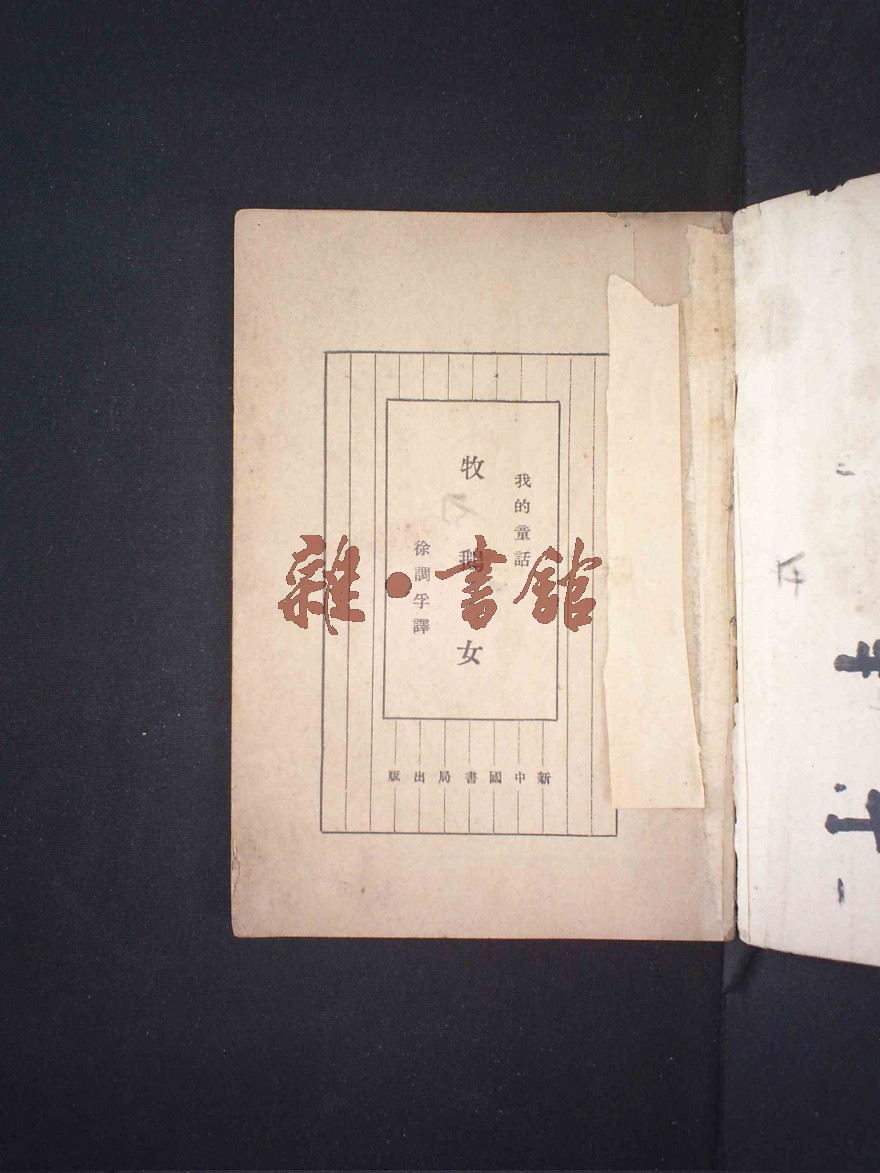 我的童話
牧鵝女
徐調孚譯
新中國書局出版
雜·書館